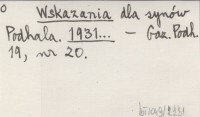 Wskazania dla synów
Podhala. 1931... — Gaz. Podh.
19, nr 20.